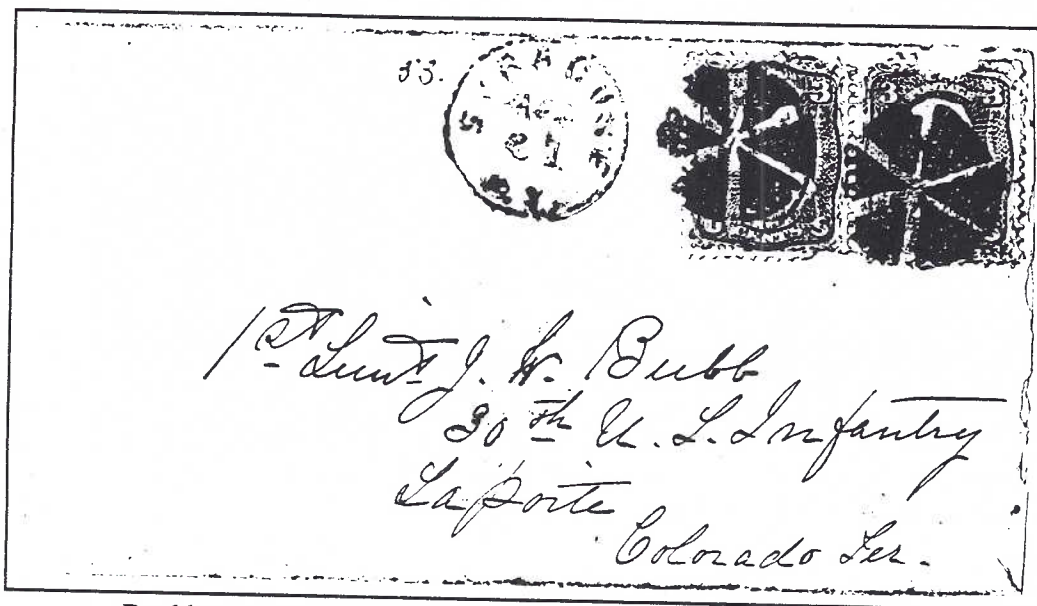 33.
SYRACUSE
21
N.Y.
3 3 3
1st Lieut J. W. Bubb
30th U. S. Infantry
Laporte
Colorado Ter.